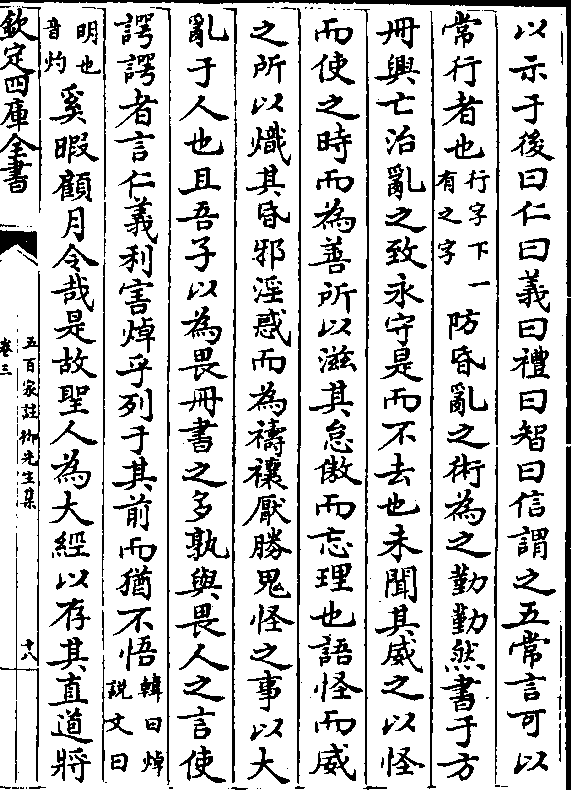 以示于後曰仁曰義曰禮曰智曰信謂之五常言可以
常行者也行字下一有之字防昏亂之術為之勤勤然書于方
冊興亡治亂之致永守是而不去也未聞其威之以怪
而使之時而為善所以滋其怠傲而忘理也語怪而威
之所以熾其昏邪淫惑而為禱禳厭勝鬼怪之事以大
亂于人也且吾子以為畏冊書之多孰與畏人之言使
諤諤者言仁義利害焯乎列于其前而猶不悟韓曰焯説文曰
明也音灼奚暇顧月令哉是故聖人為大經以存其直道將
欽定四庫全書
五百家註栁先生集
卷三
十八